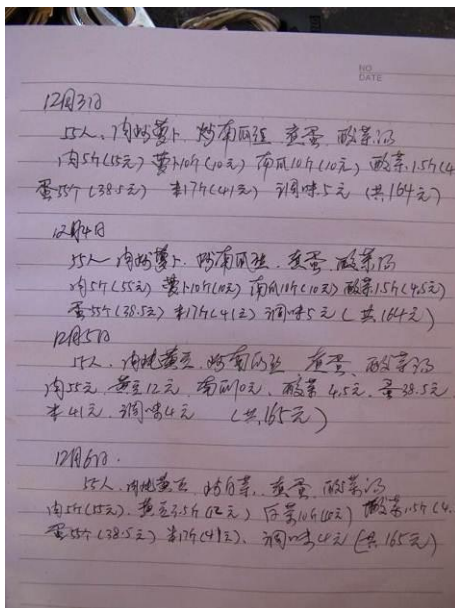 NO.
DATE
12月3日
55人、肉炒萝卜、炒南瓜丝、煮蛋、酸菜汤
肉5斤(55元) 萝卜10斤(10元) 南瓜10斤(10元) 酸菜1.5斤(4
蛋55个(38.5元) 米17斤(41元) 调味5元 (共164元)
12月4日
55人 肉炒萝卜、炒南瓜丝、煮蛋、酸菜汤
肉5斤(55元) 萝卜10斤(10元) 南瓜10斤(10元) 酸菜1.5斤(4.5元)
蛋55个(38.5元) 米17斤(41元) 调味5元 (共164元)
12月5日
55人、肉炖黄豆、炒南瓜丝、煮蛋、酸菜汤
肉55元、黄豆12元、南瓜10元、酸菜4.5元、蛋38.5元、
米41元、调味4元 (共165元)
12月6日.
55人、肉炖黄豆、炒白菜、煮蛋、酸菜汤
肉5斤(55元)、黄豆3.5斤(12元) 白菜10斤(10元) 酸菜1.5斤(4.
蛋55个(38.5元) 米17斤(41元)、调味4元 (共165元)